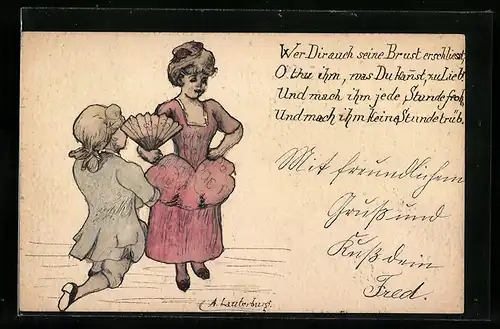 Wer Dir auch seine Brust erschliesst,
O thu ihm, was Du kañst, zu Lieb!
Und mach ihm jede Stunde froh
Und mach ihm keine Stunde trüb.
Mit freundlichem
Gruß und
Kuß dein
Fred.
A. Lauterburg.